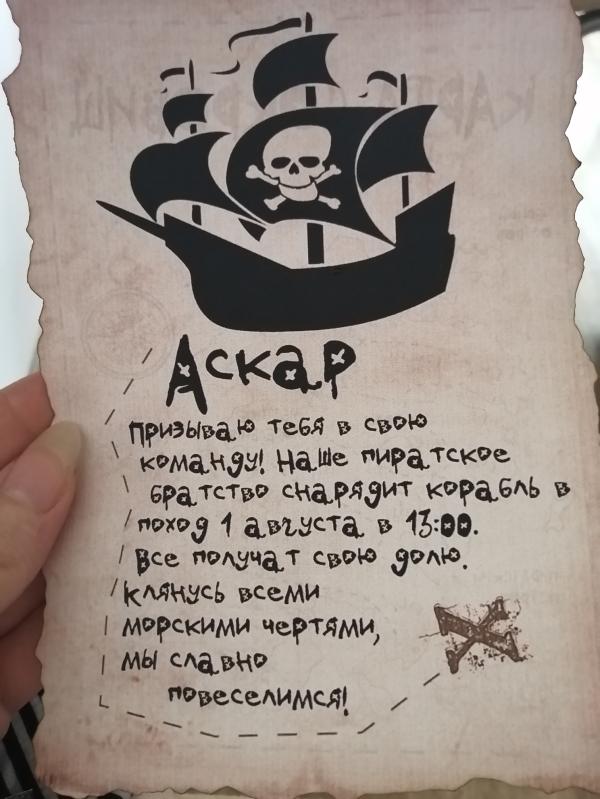 Аскар
Призываю тебя в свою
команду! Наше пиратское
братство снарядит корабль в
поход 1 августа в 13:00.
Все получат свою долю.
Клянусь всеми
морскими чертями,
мы славно
повеселимся!